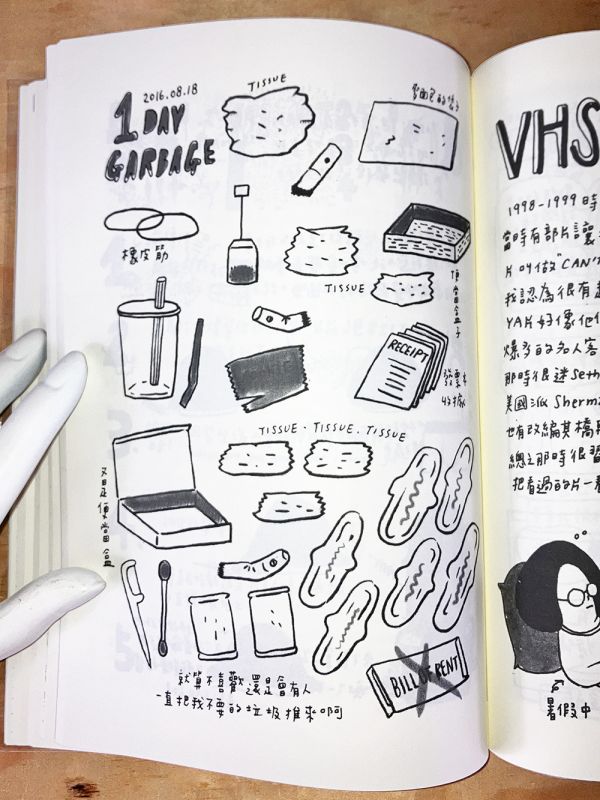 2016.08.18
1 DAY
GARBAGE
TISSUE
橡皮筋
TISSUE
便當盒子
RECEIPT
發票
TISSUE . TISSUE . TISSUE
又是便當盒
BILLS OF RENT
就算不喜歡還是會有人
一直把我不要的垃圾推來啊
VHS
1998-1999 時
當時有部片讓
片叫做"CAN'
我認為很有
YA片好像他
爆多的名人客
那時很迷 Seth
美國派 Sherm
也有改編其橋
總之那時很
把看過的片一
暑假中